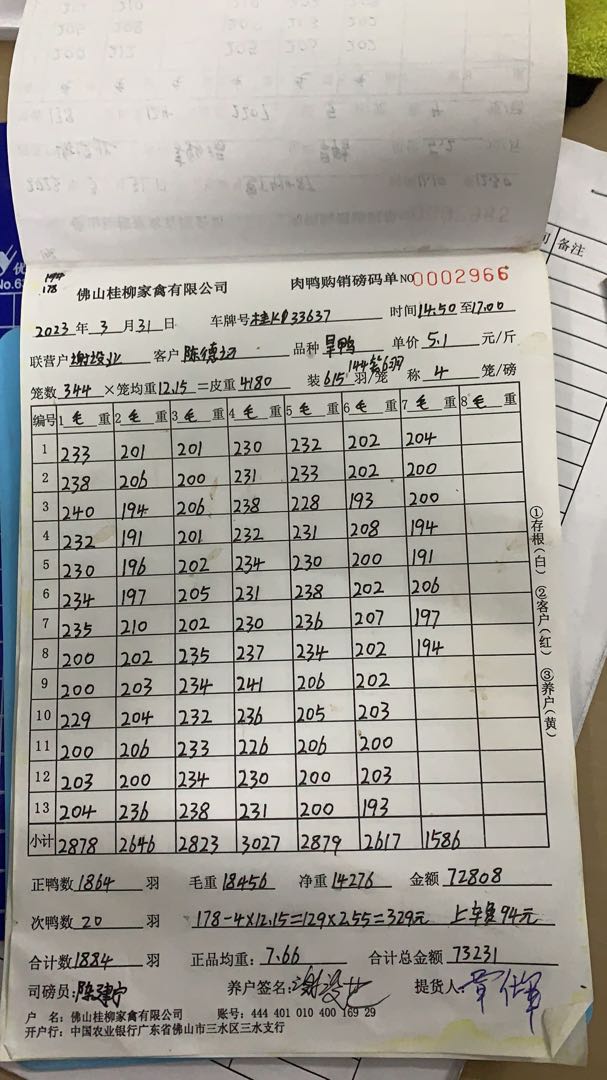 194
178
佛山桂柳家禽有限公司 肉鸭购销磅码单 NO 0002966
2023年3月31日 车牌号桂KP33637 时间14.50至17.00
联营户 客户陈德 品种旱鸭 单价5.1元/斤
笼数344×笼均重12.15=皮重4180 装615羽/笼 144笼6羽 称4笼/磅
编号 1毛重 2毛重 3毛重 4毛重 5毛重 6毛重 7毛重 8毛重
1 233 201 201 230 232 202 204
2 238 206 200 231 233 202 200
3 240 194 206 238 228 193 200
4 232 191 201 232 231 208 194
5 230 196 202 234 230 200 191
6 234 197 205 231 238 202 206
7 235 210 202 230 236 207 197
8 200 202 235 237 234 202 194
9 200 203 234 241 206 202
10 229 204 232 236 205 203
11 200 206 233 226 206 200
12 203 200 234 230 200 203
13 204 236 238 231 200 193
小计 2878 2646 2823 3027 2879 2617 1586
正鸭数1864羽 毛重18456 净重14276 金额72808
次鸭数20羽 178-4×12.15=129×2.55=329元 上车费94元
合计数1884羽 正品均重:7.66 合计总金额73231
司磅员:陈建宁 养户签名: 提货人:
户 名:佛山桂柳家禽有限公司 账号:444 401 010 400 169 29
开户行:中国农业银行广东省佛山市三水区三水支行
①存根(白) ②客户(红) ③养户(黄)
备注